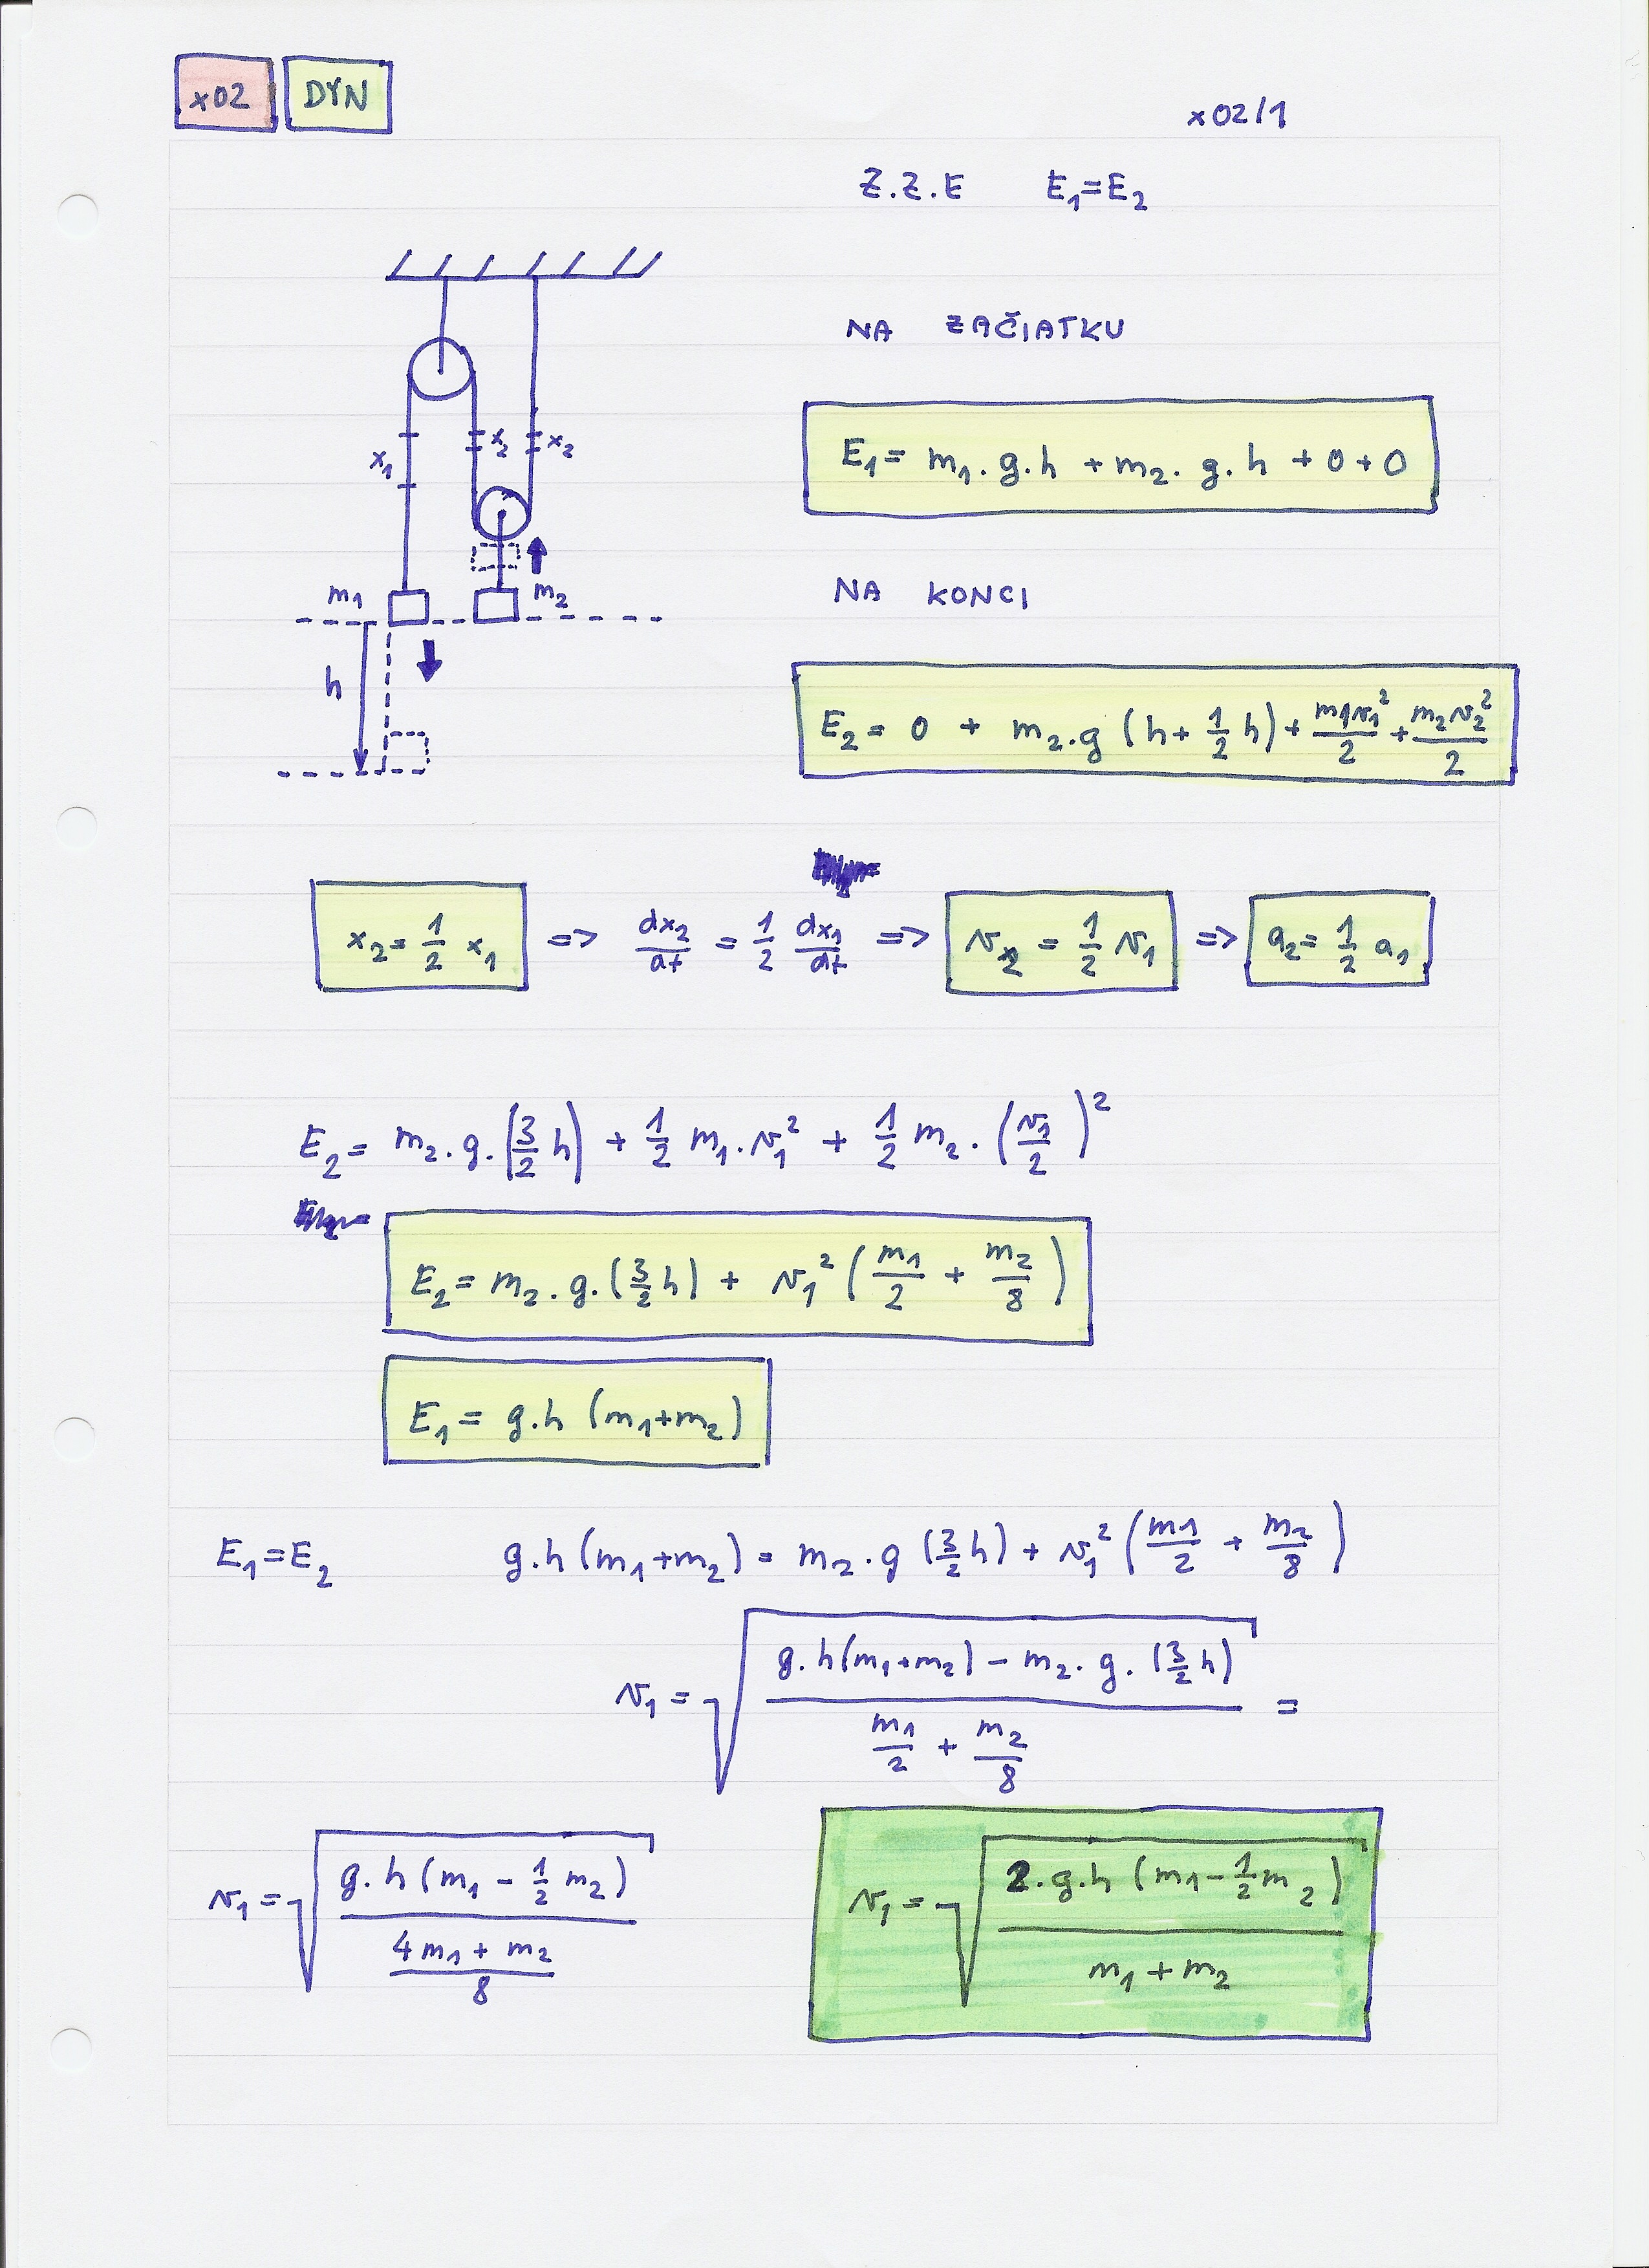 x02 DYN x02/1
Z.Z.E E₁=E₂
NA ZAČIATKU
x₁ x₂ x₂
E₁= m₁.g.h + m₂.g.h + 0 + 0
m₁ m₂
NA KONCI
h
E₂= 0 + m₂.g (h + 1/2 h) + m₁v₁²/2 + m₂v₂²/2
x₂= 1/2 x₁ => dx₂/dt = 1/2 dx₁/dt => v₂ = 1/2 v₁ => a₂= 1/2 a₁
E₂= m₂.g.(3/2 h) + 1/2 m₁.v₁² + 1/2 m₂.(v₁/2)²
E₂= m₂.g.(3/2 h) + v₁² (m₁/2 + m₂/8)
E₁= g.h (m₁+m₂)
E₁=E₂ g.h (m₁+m₂) = m₂.g (3/2 h) + v₁² (m₁/2 + m₂/8)
v₁ = √((g.h(m₁+m₂) - m₂.g.(3/2 h)) / (m₁/2 + m₂/8)) =
v₁ = √((g.h (m₁ - 1/2 m₂)) / ((4m₁ + m₂)/8)) v₁ = √((2.g.h (m₁ - 1/2 m₂)) / (m₁ + m₂))